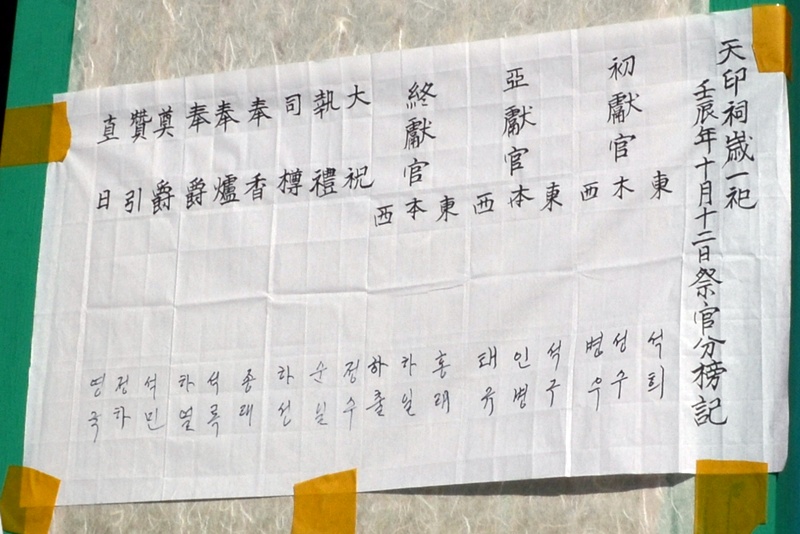 天印祠歲一祀
壬辰年十月十二日祭官分榜記
初獻官 東 석희
本 성수
西 병우
亞獻官 東 석구
本 인병
西 태규
終獻官 東 홍래
本 하일
西 하출
大祝 정수
執禮 순일
司樽 하선
奉香 종태
奉爐 석록
奉爵 하열
奠爵 석민
贊引 정하
直日 영국